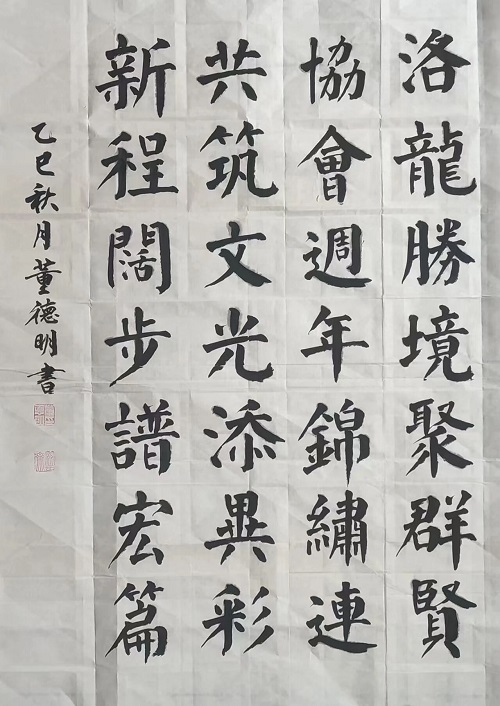 洛龍勝境聚群賢
協會週年錦繡連
共筑文光添異彩
新程闊步譜宏篇
乙巳秋月董德明書